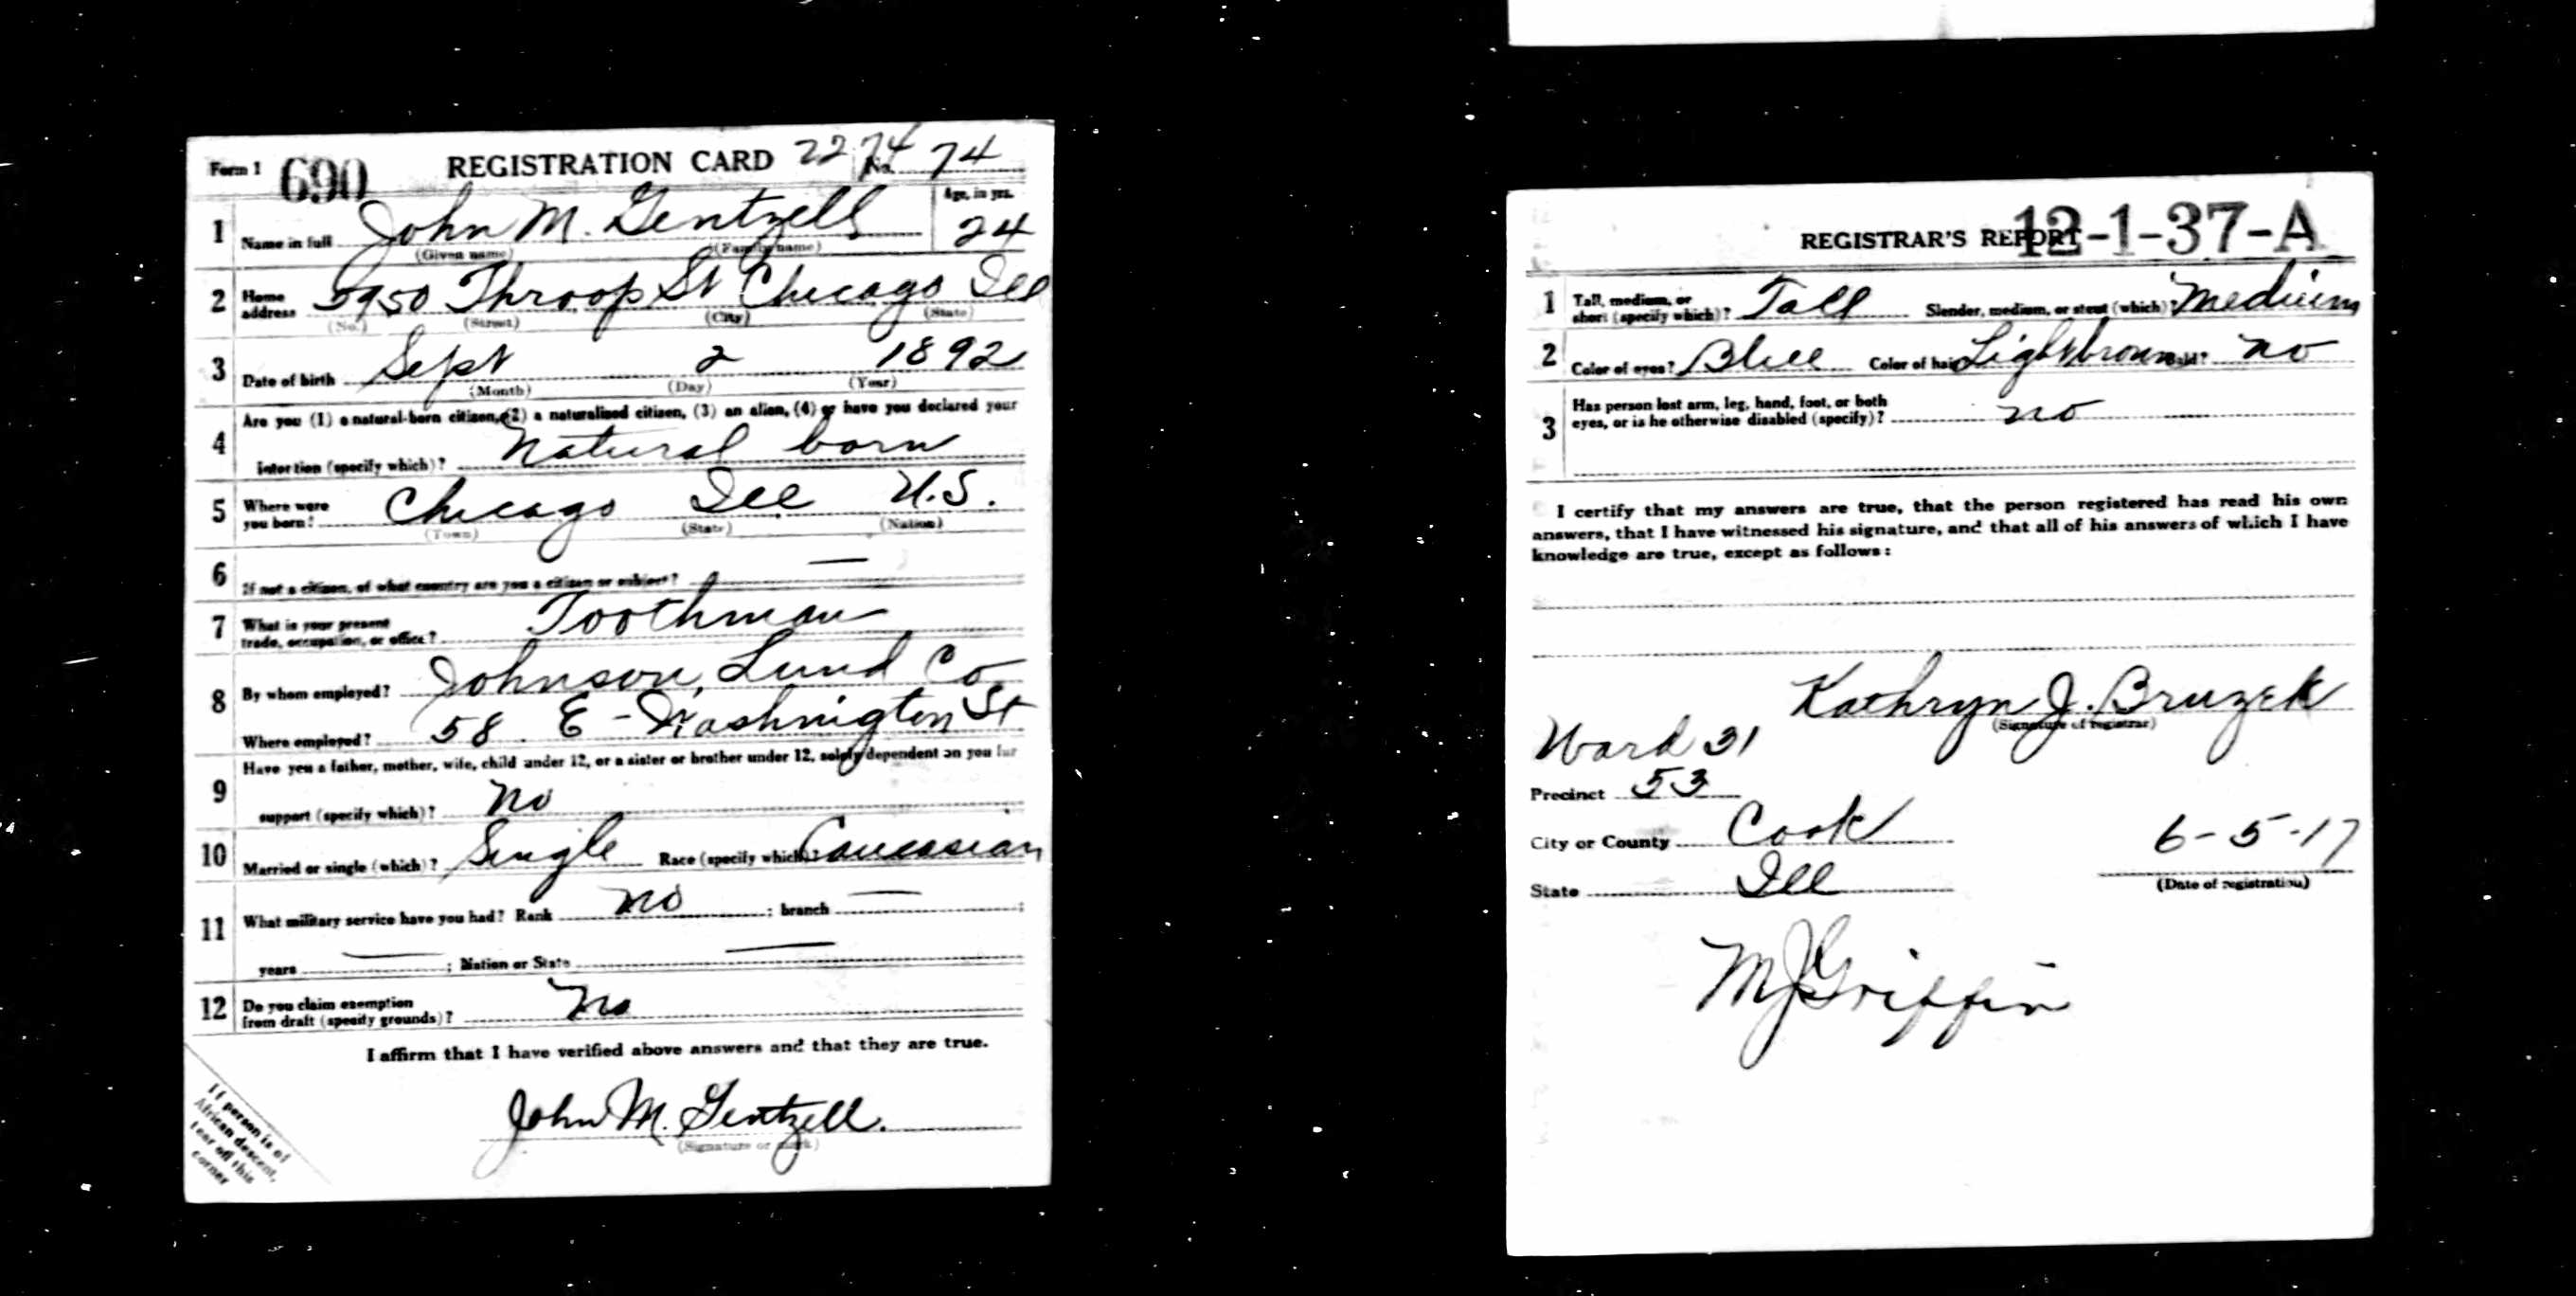 Form 1 690 REGISTRATION CARD 2274 No. 74
1 Name in full John M. Gentzell Age, in yrs. 24
(Given name) (Family name)
2 Home address 5950 Throop St Chicago Ill
(No.) (Street) (City) (State)
3 Date of birth Sept 2 1892
(Month) (Day) (Year)
4 Are you (1) a natural-born citizen, (2) a naturalized citizen, (3) an alien, (4) or have you declared your
intention (specify which)? Natural born
5 Where were you born? Chicago Ill U.S.
(Town) (State) (Nation)
6 If not a citizen, of what country are you a citizen or subject? —
7 What is your present trade, occupation, or office? Toothman
8 By whom employed? Johnson, Lund Co
Where employed? 58 E - Washington St
9 Have you a father, mother, wife, child under 12, or a sister or brother under 12, solely dependent on you for
support (specify which)? no
10 Married or single (which)? Single Race (specify which)? Caucasian
11 What military service have you had? Rank no ; branch — ;
years — ; Nation or State —
12 Do you claim exemption from draft (specify grounds)? No
I affirm that I have verified above answers and that they are true.
John M. Gentzell.
(Signature or mark)
If person is of
African descent,
tear off this
corner
REGISTRAR'S REPORT 12-1-37-A
1 Tall, medium, or short (specify which)? Tall Slender, medium, or stout (which)? Medium
2 Color of eyes? Blue Color of hair? Light brown Bald? no
3 Has person lost arm, leg, hand, foot, or both
eyes, or is he otherwise disabled (specify)? no
I certify that my answers are true, that the person registered has read his own
answers, that I have witnessed his signature, and that all of his answers of which I have
knowledge are true, except as follows:
Kathryn J. Bruzek
(Signature of registrar)
Ward 31
Precinct 53
City or County Cook 6-5-17
State Ill (Date of registration)
M J Griffin